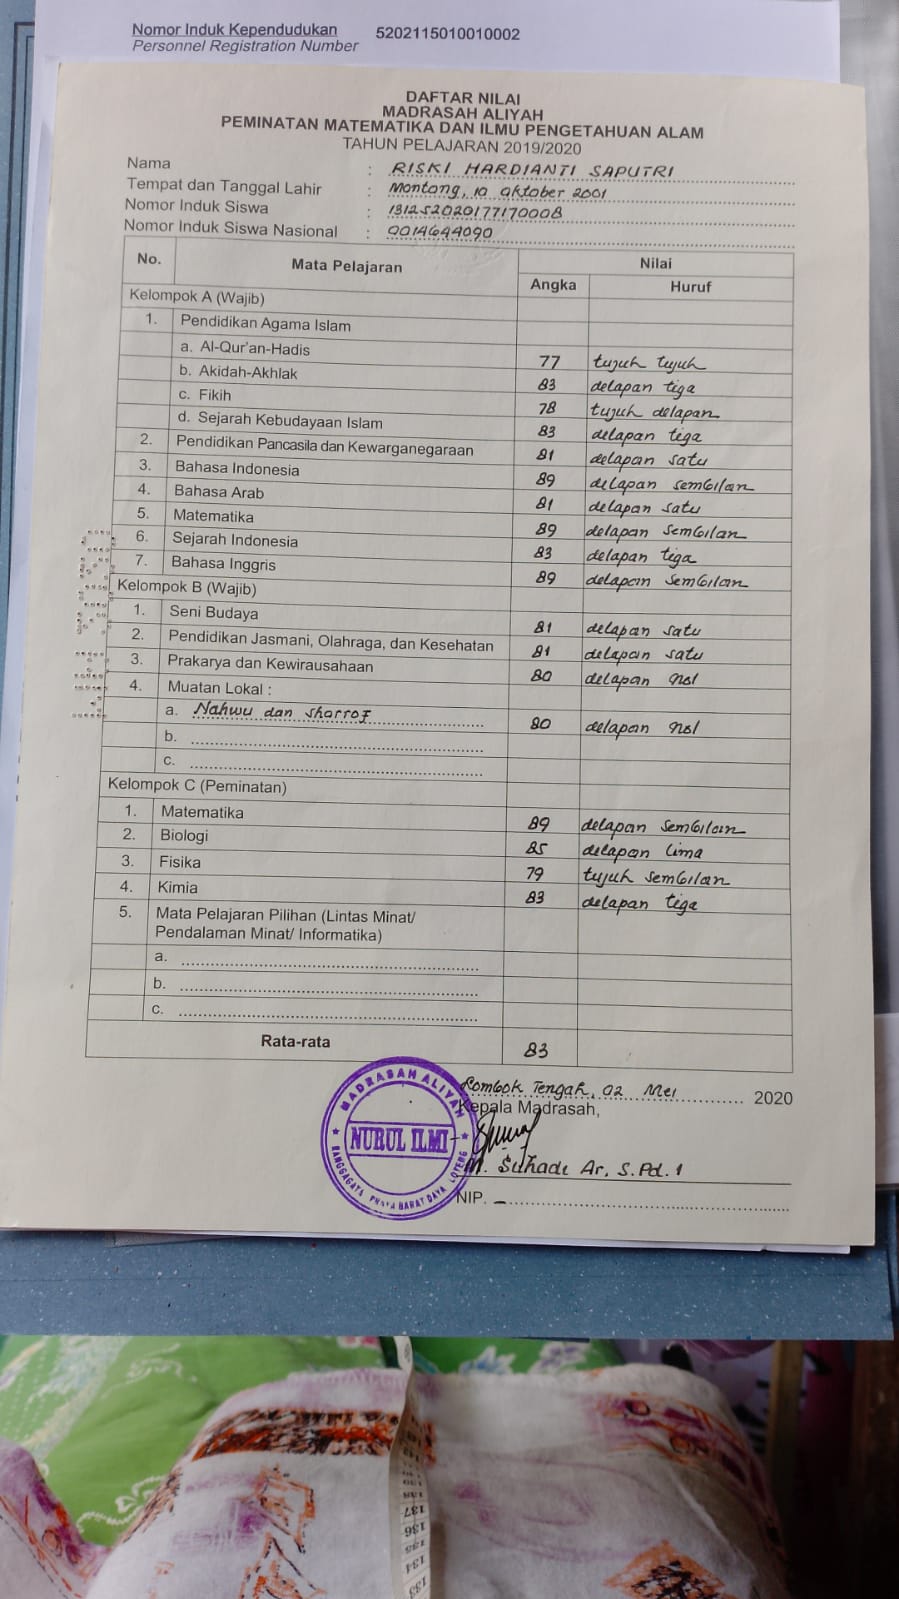 Nomor Induk Kependudukan 5202115010010002
Personnel Registration Number
DAFTAR NILAI
MADRASAH ALIYAH
PEMINATAN MATEMATIKA DAN ILMU PENGETAHUAN ALAM
TAHUN PELAJARAN 2019/2020
Nama : RISKI HARDIANTI SAPUTRI
Tempat dan Tanggal Lahir : Montong, 10 Oktober 2001
Nomor Induk Siswa : 131252020177170008
Nomor Induk Siswa Nasional : 0014644090
No. Mata Pelajaran Nilai
Angka Huruf
Kelompok A (Wajib)
1. Pendidikan Agama Islam
a. Al-Qur'an-Hadis 77 tujuh tujuh
b. Akidah-Akhlak 83 delapan tiga
c. Fikih 78 tujuh delapan
d. Sejarah Kebudayaan Islam 83 delapan tiga
2. Pendidikan Pancasila dan Kewarganegaraan 81 delapan satu
3. Bahasa Indonesia 89 delapan sembilan
4. Bahasa Arab 81 delapan satu
5. Matematika 89 delapan sembilan
6. Sejarah Indonesia 83 delapan tiga
7. Bahasa Inggris 89 delapan sembilan
Kelompok B (Wajib)
1. Seni Budaya 81 delapan satu
2. Pendidikan Jasmani, Olahraga, dan Kesehatan 81 delapan satu
3. Prakarya dan Kewirausahaan 80 delapan nol
4. Muatan Lokal :
a. Nahwu dan Sharrof 80 delapan nol
b.
c.
Kelompok C (Peminatan)
1. Matematika 89 delapan sembilan
2. Biologi 85 delapan lima
3. Fisika 79 tujuh sembilan
4. Kimia 83 delapan tiga
5. Mata Pelajaran Pilihan (Lintas Minat/
Pendalaman Minat/ Informatika)
a.
b.
c.
Rata-rata 83
Lombok Tengah, 02 Mei 2020
Kepala Madrasah,
MADRASAH ALIYAH
NURUL ILMI
RANGGAGATA PRAYA BARAT DAYA LOTENG
M. Suhadi Ar, S.Pd.I
NIP. -
138
137
136
135
134
133